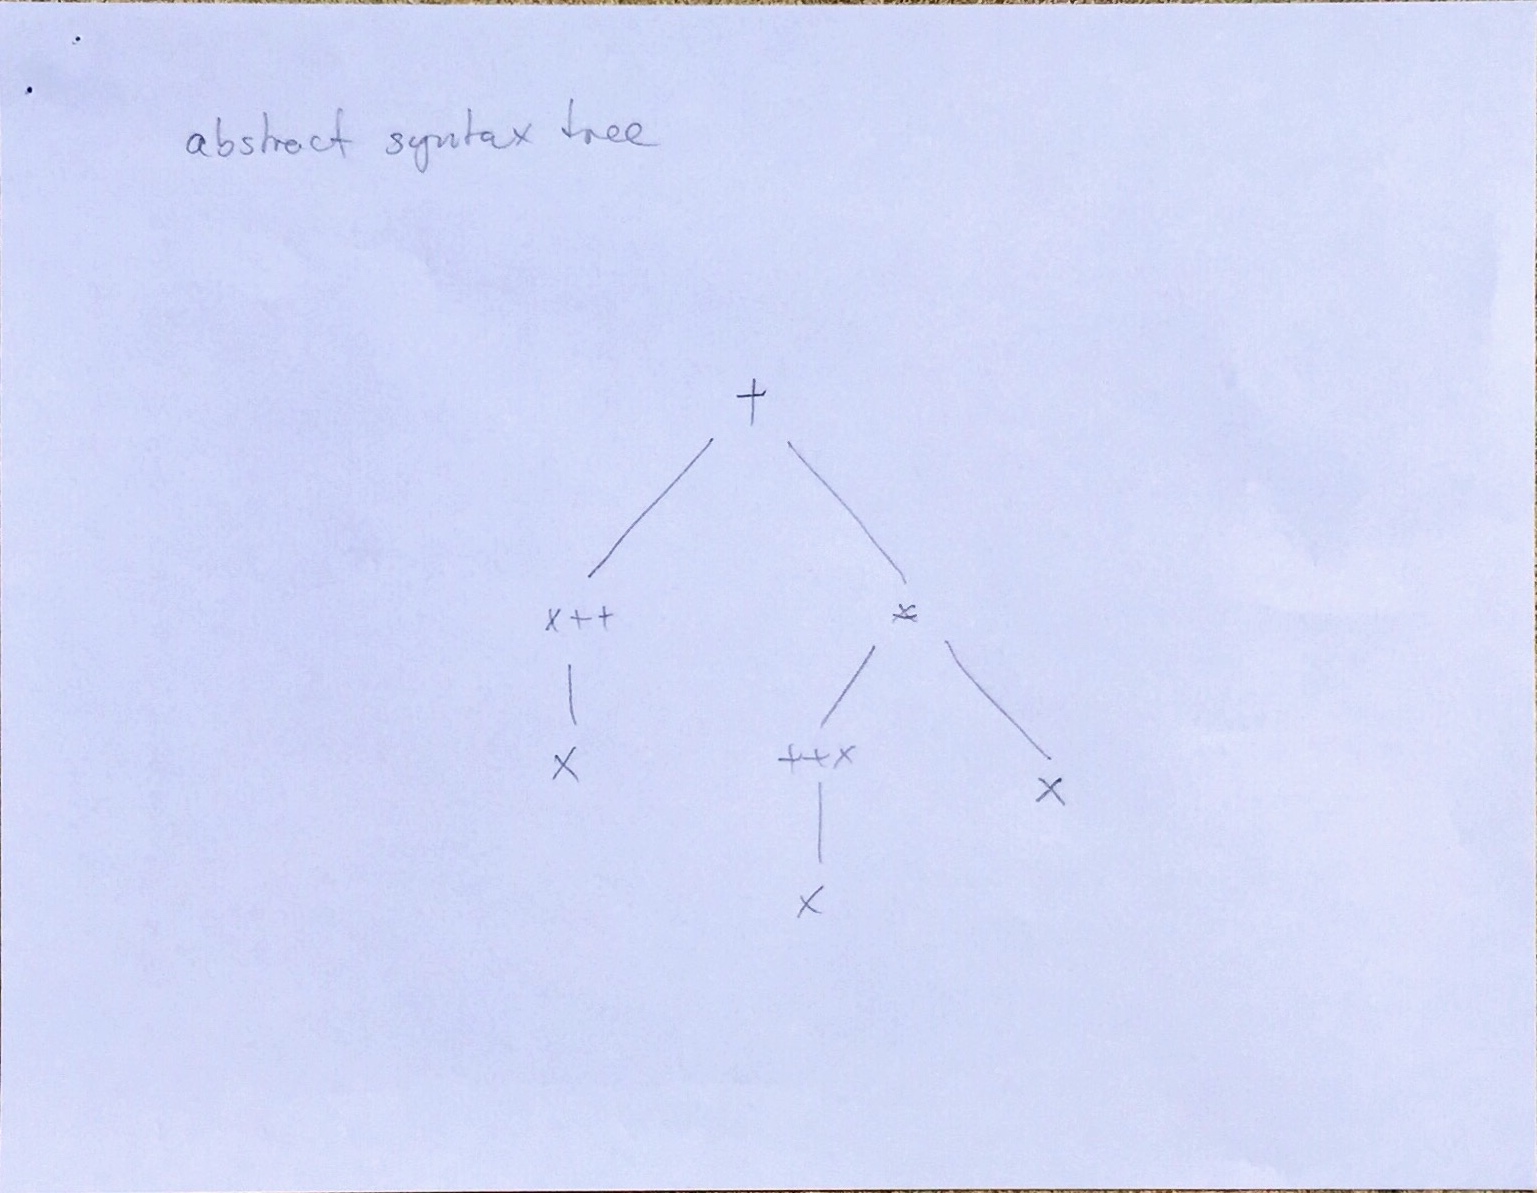 abstract syntax tree
+
x++ *
x ++x x
x